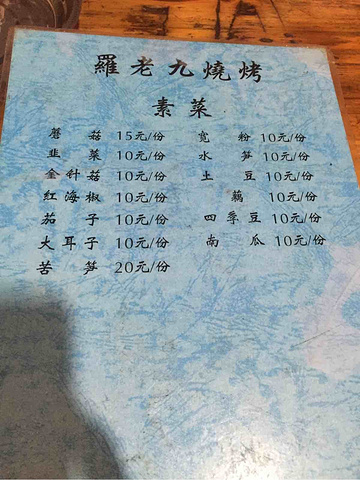 羅老九燒烤
素菜
蘑菇 15元/份 寬粉 10元/份
韭菜 10元/份 水笋 10元/份
金针菇 10元/份 土豆 10元/份
红海椒 10元/份 藕 10元/份
茄子 10元/份 四季豆 10元/份
大耳子 10元/份 南瓜 10元/份
苦笋 20元/份